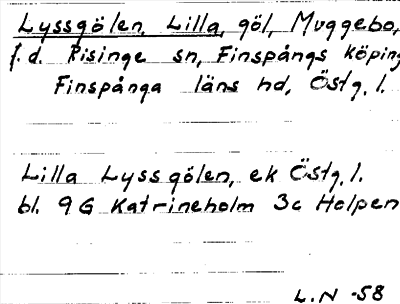 Lyssgölen, Lilla, göl, Muggebo,
f.d. Risinge sn, Finspångs köping
Finspånga läns hd, Östg.l.
Lilla Lyssgölen, ek Östg.l.
bl. 9G Katrineholm 3c Helpen
L.N -58